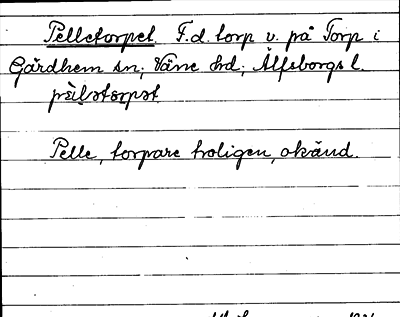 Pelletorpet F.d. torp u. på Torp i
Gärdhem sn; Väne hd; Älfsborgs l.
pèl̥ətɔrpət
Pelle, torpare troligen, okänd.